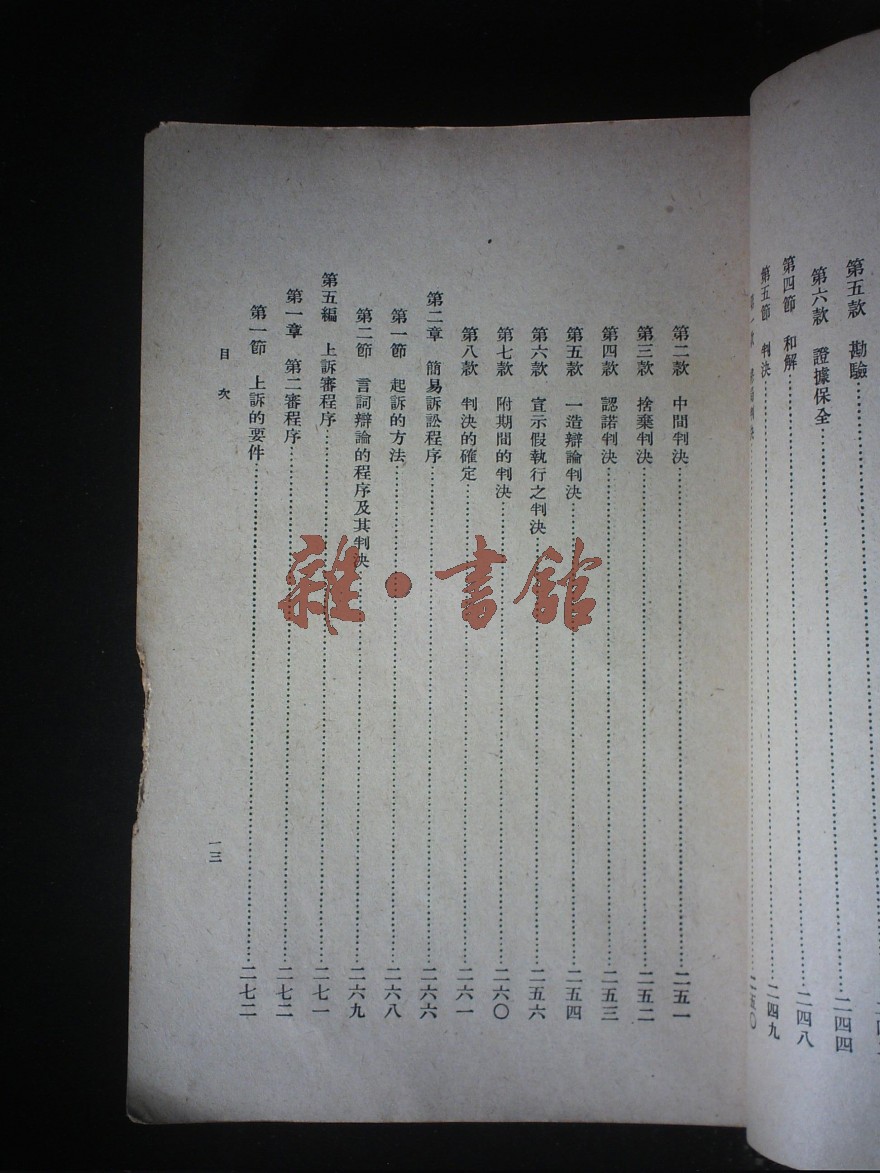 第五款　勘驗
第六款　證據保全……二四四
第四節　和解……二四八
第五節　判決……二四九
判決……二五〇
第二款　中間判決……二五一
第三款　捨棄判決……二五二
第四款　認諾判決……二五三
第五款　一造辯論判決……二五四
第六款　宣示假執行之判決……二五六
第七款　附期間的判決……二六〇
第八款　判決的確定……二六一
第二章　簡易訴訟程序……二六六
第一節　起訴的方法……二六八
第二節　言詞辯論的程序及其判決……二六九
第五編　上訴審程序……二七一
第一章　第二審程序……二七二
第一節　上訴的要件……二七二
目次
一三
雜·書館